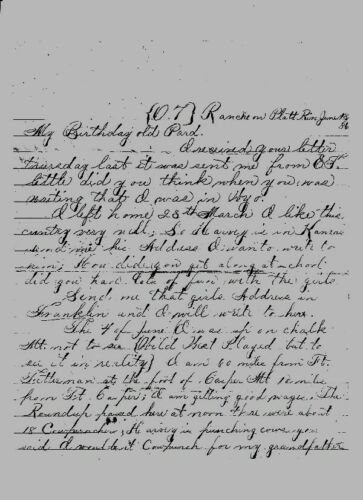 {O. 7} Ranche on Platt Riv, June
My Birthday old Pard.
I received your letter
thursday last it was sent me from
little did you think when you was
writing that I was in Wyo.
I left home 28th March I like this
country very well; So Harvey is in Kansas
send me his Address I want to write to
him; How did you get along at school
did you have lots of fun with the girls
Send me that girls Address in
Franklin and I will write to her.
The 4 of June I was up on chalk
Mt. not to see Wild West Played but to
see it in reality} I am 60 miles from Ft.
Fetterman at the foot of Casper Mt 10 miles
from Ft. Casper; I am getting good wages. The
Roundup passed here at noon there were about
18 Cowpunchers; Harvey is punching cows you
said I wouldn't Cowpunch for my grandfather